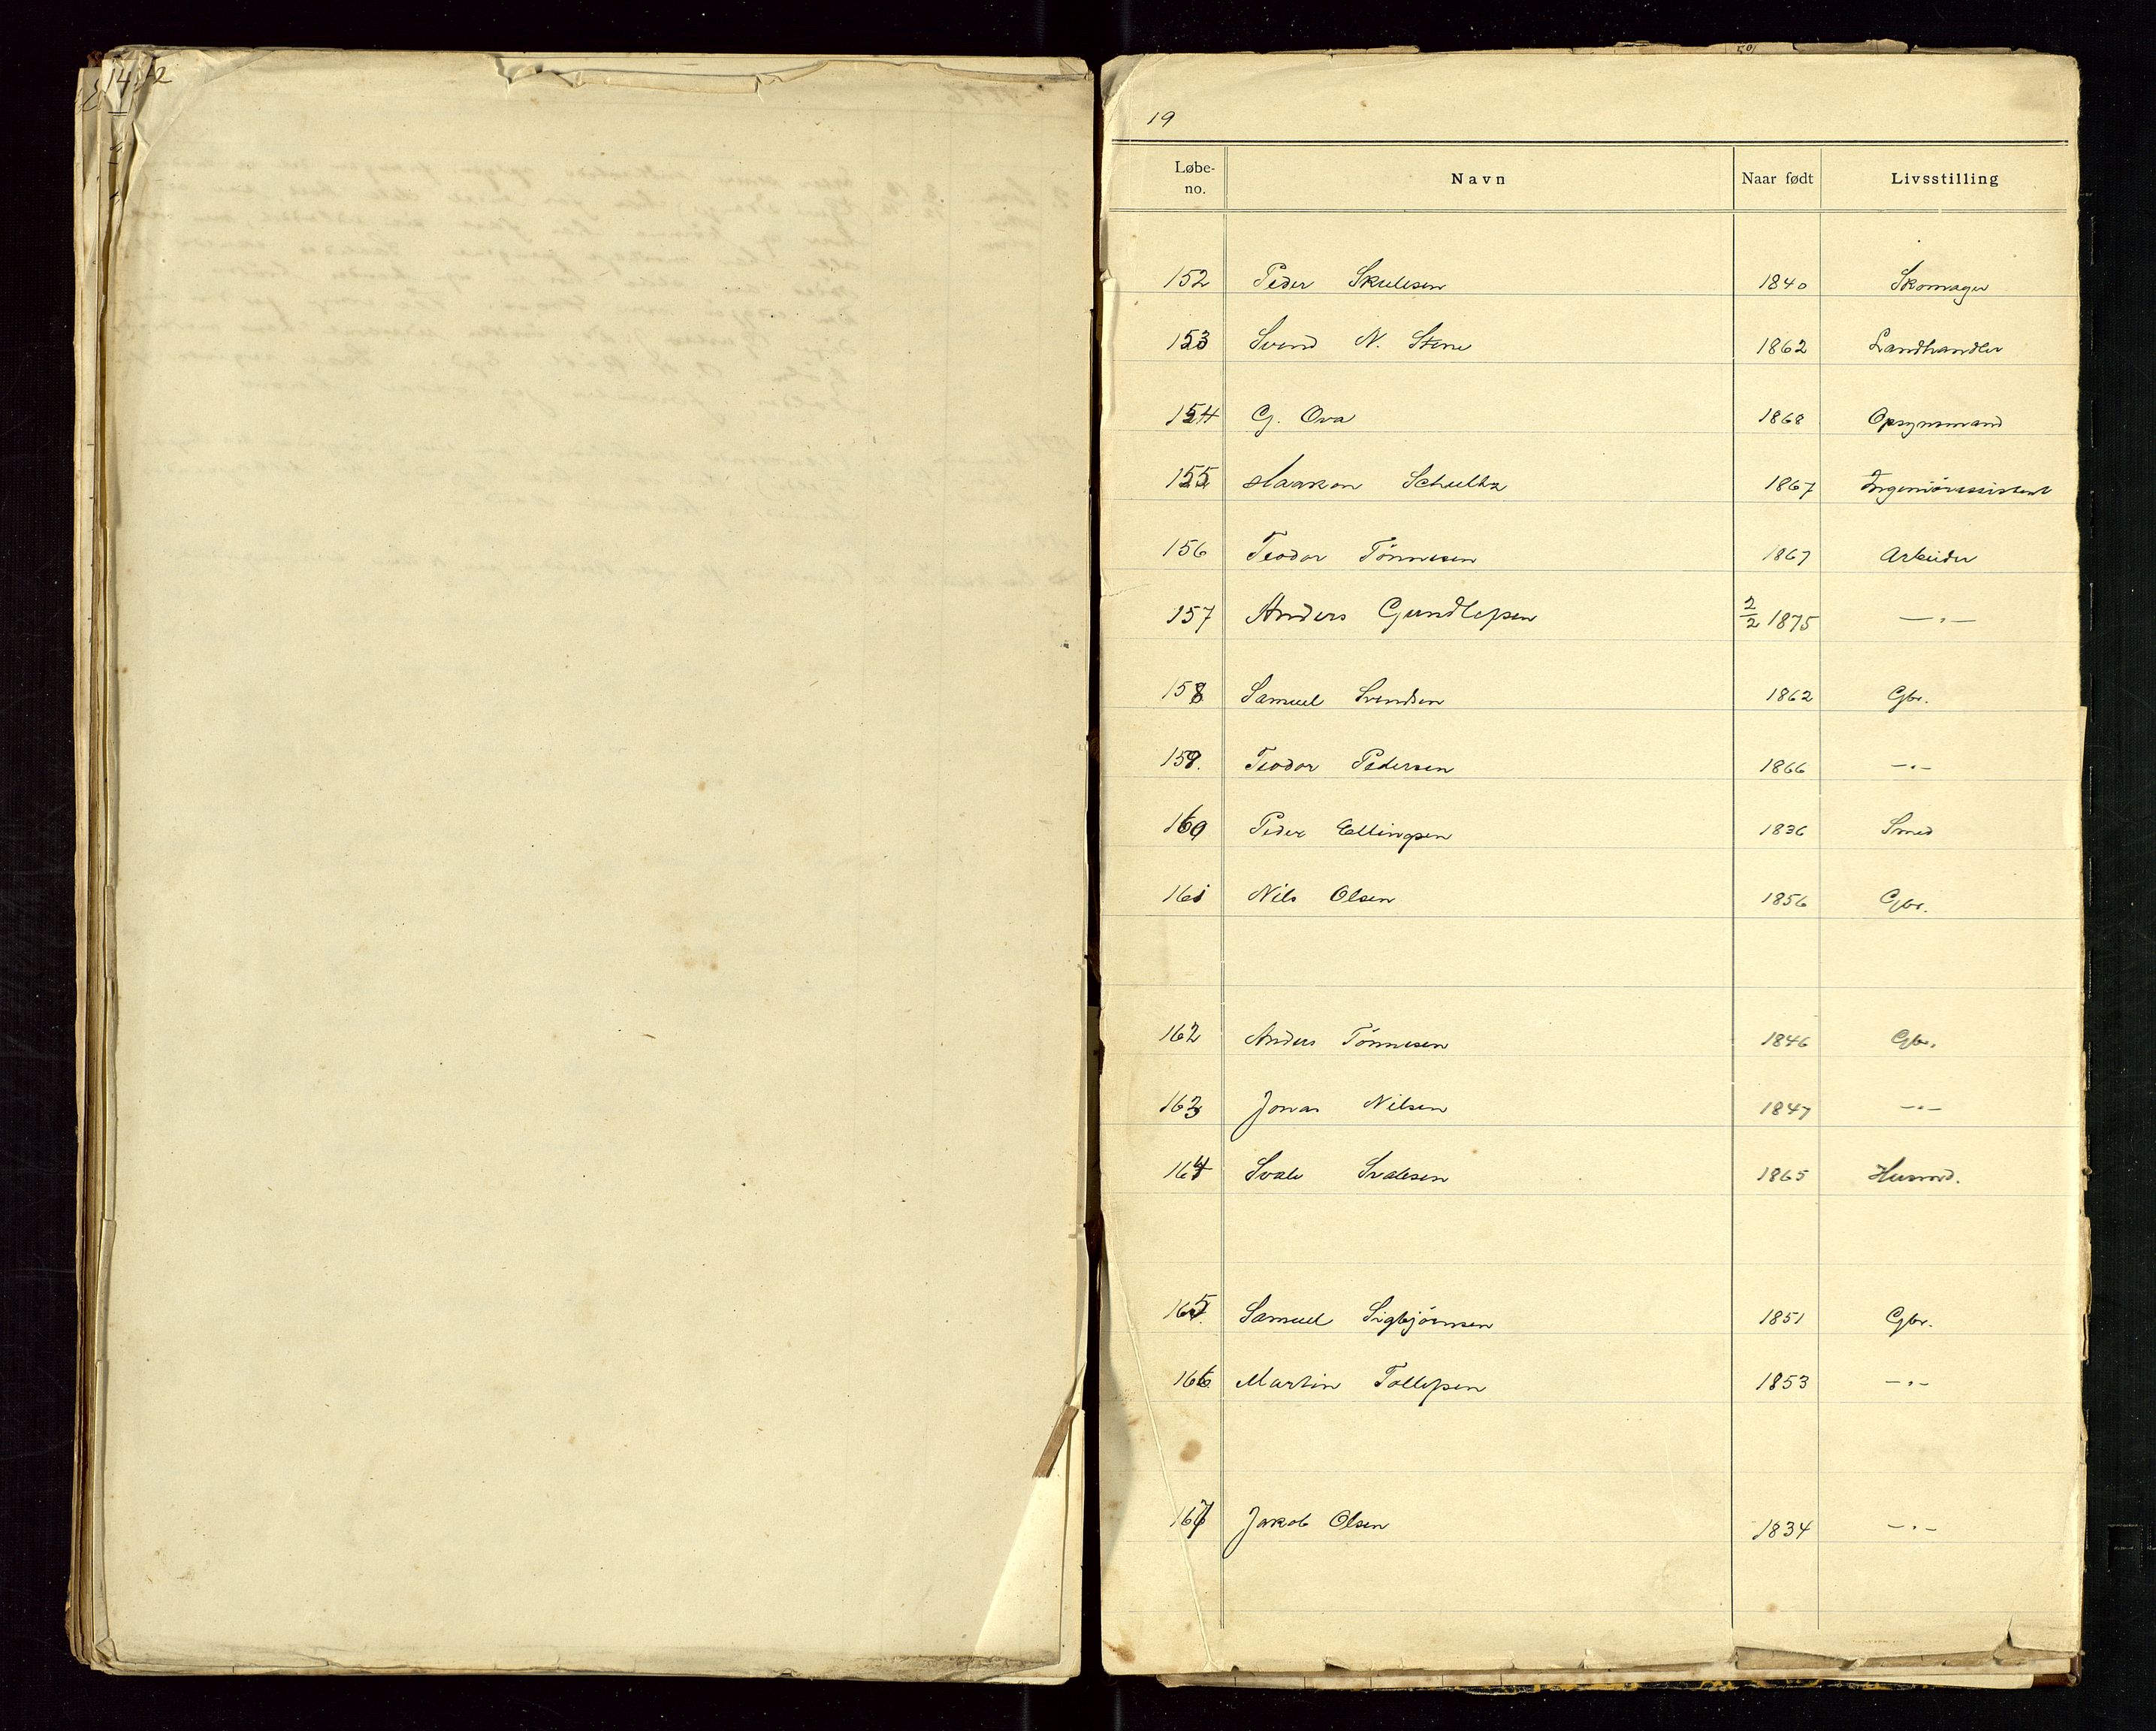 19
Løbe-no. Navn Naar født Livsstilling
152 Peder Skulesen 1840 Skomager
153 Svend N. Stene 1862 Landhandler
154 G. Ova 1868 Opsynsmand
155 Haakon Schultz 1867 Ingeniörassistent
156 Teodor Tönnesen 1867 Arbeider
157 Anders Gundlefsen 2/2 1875 —"—
158 Samuel Svendsen 1862 Gbr.
159. Teodor Pedersen 1866 —"—
160 Peder Ellingsen 1836 Smed
161 Nils Olsen 1856 Gbr.
162 Anders Tönnesen 1846 Gbr.
163 Jonas Nilsen 1847 —"—
164 Svale Svalesen 1865 Husmd.
165. Samuel Sigbjörnsen 1851 Gbr.
166 Martin Tollefsen 1853 —"—
167 Jakob Olsen 1834 —"—